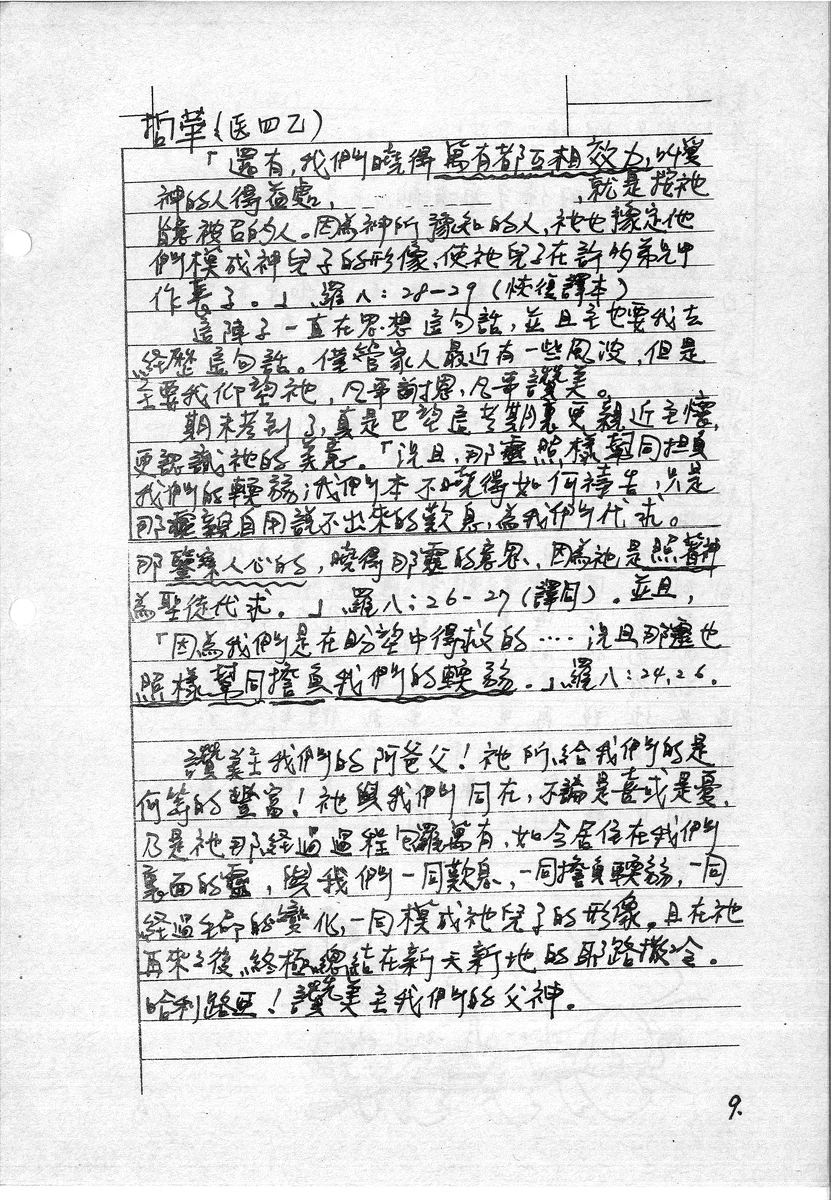 哲華(医四乙)
「還有,我們曉得萬有都互相效力,叫愛
神的人得益處, 就是按祂
旨意被召的人。因為神所豫知的人,祂也豫定他
們模成神兒子的形像,使祂兒子在許多弟兄中
作長子。」 羅八:28-29(恢復譯本)
這陣子一直在思想這句話,並且主也要我去
経歷這句話。僅管家人最近有一些風波,但是
主要我仰望祂,凡事謝恩,凡事讚美。
期末考到了,真是巴望這考期裏更親近主懷,
更認識祂的美意。「況且,那靈照樣幫同担負
我們的輭弱;我們本不曉得如何禱告,只是
那靈親自用說不出來的歎息,為我們代求。
那鑒察人心的,曉得那靈的意思、因為祂是照著神
為聖徒代求。」 羅八:26-27(譯同)。並且,
「因為我們是在盼望中得救的‥‥況且那靈也
照樣幫同擔負我們的輭弱。」羅八:24,26.
讚美主我們的阿爸父!祂所給我們的是
何等的豐富!祂與我們同在,不論是喜或是憂,
乃是祂那経過過程包羅萬有,如今居住在我們
裏面的靈,與我們一同歎息,一同擔負輭弱,一同
経過主的變化,一同模成祂兒子的形像。且在祂
再來之後,終極總結在新天新地的耶路撒冷。
哈利路亞!讚美主我們的父神。
9.